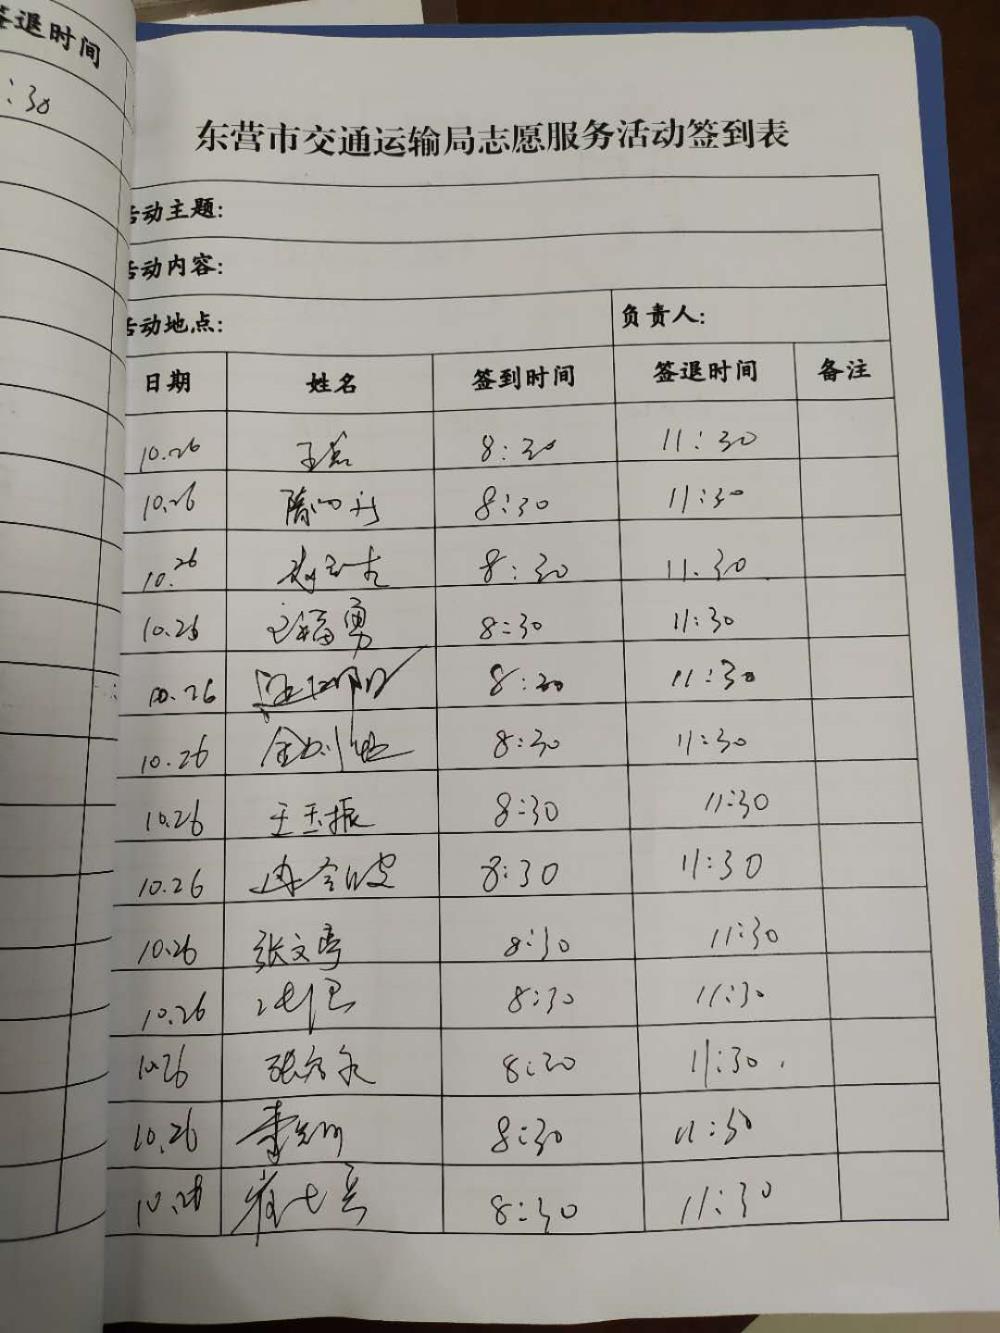 签退时间
:30
东营市交通运输局志愿服务活动签到表
活动主题:
活动内容:
活动地点: 负责人:
日期 姓名 签到时间 签退时间 备注
10.26 8:30 11:30
10.26 8:30 11:30
10.26 8:30 11.30
10.26 王福勇 8:30 11:30
10.26 8:30 11:30
10.26 8:30 11:30
10.26 王玉振 8:30 11:30
10.26 8:30 11:30
10.26 张文亭 8:30 11:30
10.26 8:30 11:30
10.26 8:30 11:30
10.26 8:30 11:30
10.26 8:30 11:30